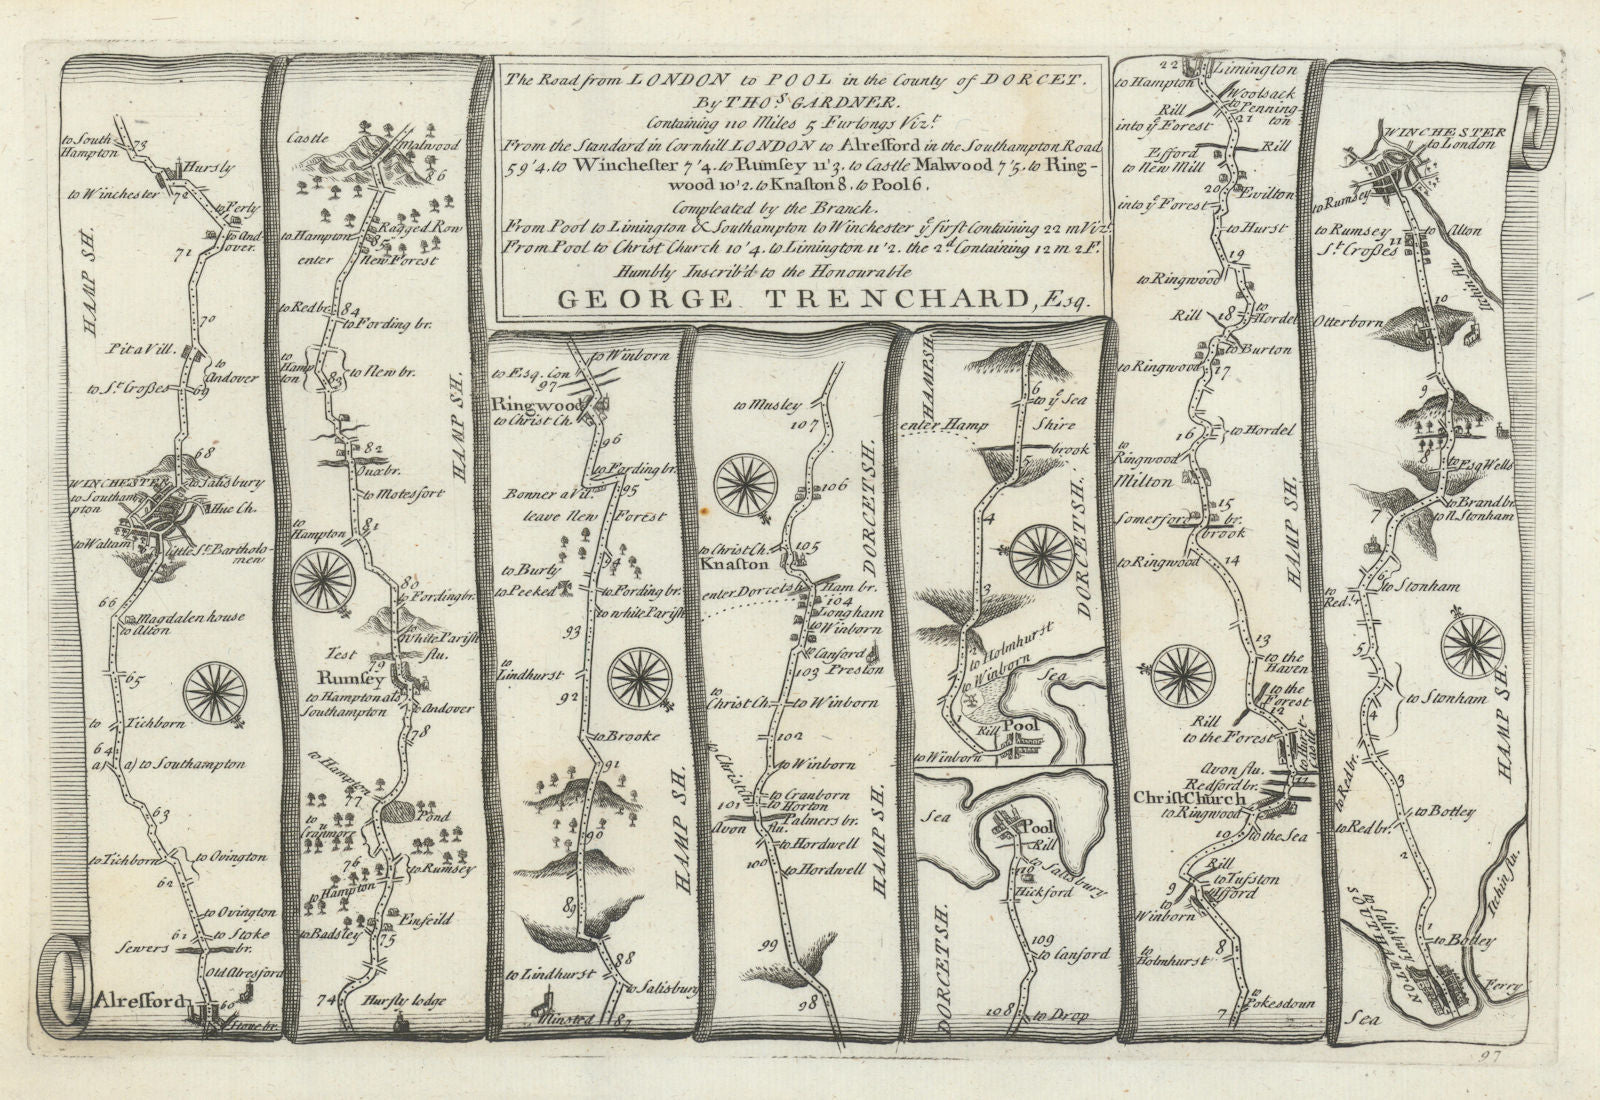 The Road from LONDON to POOL in the County of DORCET.
By THOS. GARDNER.
Containing 110 Miles 5 Furlongs Vizt.
From the Standard in Cornhill LONDON to Alresford in the Southampton Road
59'4. to Winchester 7'4. to Rumsey 11'3. to Castle Malwood 7'5. to Ring-
wood 10'2. to Knaston 8. to Pool 6.
Compleated by the Branch.
From Pool to Limington & Southampton to Winchester ye first Containing 22 m Vizt.
From Pool to Christ Church 10'4. to Limington 11'2. the 2d. Containing 12 m 2 F.
Humbly Inscrib'd to the Honourable
GEORGE TRENCHARD, Esq.
to South
Hampton
73
Hursly
to Winchester
72
to Ferly
to And-
over.
71
HAMP SH.
70
Pit a Vill.
to Andover
to St. Crosses
69
68
WINCHESTER
to Salisbury
to Southam
pton
Hue Ch.
to Waltam
Little St. Bartholo-
men
66
Magdalen house
to Alton
65
to Tichborn
64
a) a) to Southampton
63
to Tichborn
to Ovington
62
to Ovington
61
to Stoke
Sewers br.
Old Alresford
Alresford
60
Stone br.
Castle
Malwood
86
Ragged Row
to Hampton
85
enter New Forest
to Redbr.
84
to Fording br.
to Hamp
ton
83
to New br.
HAMP SH.
82
Oux br.
to Motesfort
to Hampton
81
80
to Fording br.
to White Parish
Test flu.
79
Rumsey
to Hampton als
Southampton
to Andover
78
to Hampton
77
Pond
to Cranmore
76
to Rumsey
to Hampton
Enfeild
to Badsley
75
74
Hursly lodge
to Winborn
to Esq. Con
97
Ringwood
to Christ Ch.
96
to Fording br.
Bonner a Vil.
95
leave New Forest
94
to Burly
to Peeked
to Fording br.
to white Parish
93
to Lindhurst
92
to Brooke
91
HAMP SH.
90
89
88
to Lindhurst
to Salisbury
Minsted
87
to Musley
107
106
DORCETSH.
to Christ Ch.
105
Knaston
enter Dorcetsh
Ham br.
104
Longham
to Winborn
Canford
103
Preston
to Christ Ch.
to Winborn
102
to Winborn
to Christ Ch
to Cranborn
101
to Horton
Avon flu.
Palmers br.
to Hordwell
100
to Hordwell
HAMP SH.
99
98
HAMPSH.
6
to ye Sea
enter Hamp Shire
brook
5
4
DORCETSH.
3
to Holmhurst
to Winborn
Sea
1
Rill
Pool
to Winborn
Sea
Pool
Rill
to Salisbury
110
Hickford
109
to Canford
DORCETSH.
108
to Drop
22
Limington
to Hampton
Woolsack
to Penning-
ton
Rill
into ye Forest
21
Efford
Rill
to New Mill
20
Evilton
into ye Forest
to Hurst
19
to Ringwood
to Hordel
Rill
18
to Burton
to Ringwood
17
16
to Hordel
to Ringwood
Milton
15
Somerford br.
brook
to Ringwood
14
HAMP SH.
13
to the Haven
to the Forest
12
Rill
to the Forest
to Hurst-
Castle
Avon flu.
11
Redford br.
Christ Church
to Ringwood
10
to the Sea
Rill
to Tufston
9
Afford
to Winborn
8
to Holmhurst
to Pokesdoun
7
WINCHESTER
to London
to Rumsey
to Rumsey
to Alton
St. Crosses
11
Itchin flu.
10
Otterborn
9
8
to Esq. Wells
to Brand br.
7
to N. Stonham
6
to Stonham
to Red br.
5
to Stonham
4
HAMP SH.
to Red br.
3
to Botley
to Red br.
2
Itchin flu.
1
to Botley
to Salisbury
SOUTHAMPTON
Ferry
Sea
97